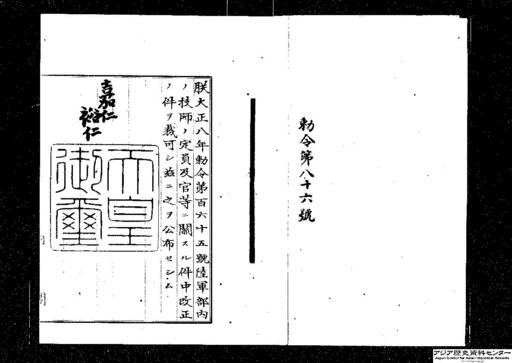 勅令第八十六號
朕大正八年勅令第百六十五號陸軍部内
ノ技師ノ定員及官等ニ關スル件中改正
ノ件ヲ裁可シ茲ニ之ヲ公布セシム
嘉仁
裕仁
天皇
御璽
アジア歴史資料センター
Japan Center for Asian Historical Records